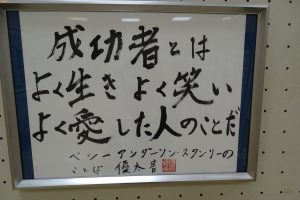 成功者とは
よく生き よく笑い
よく愛した人のことだ
ベシーアンダーソン・スタンリーの
ことば 優太書